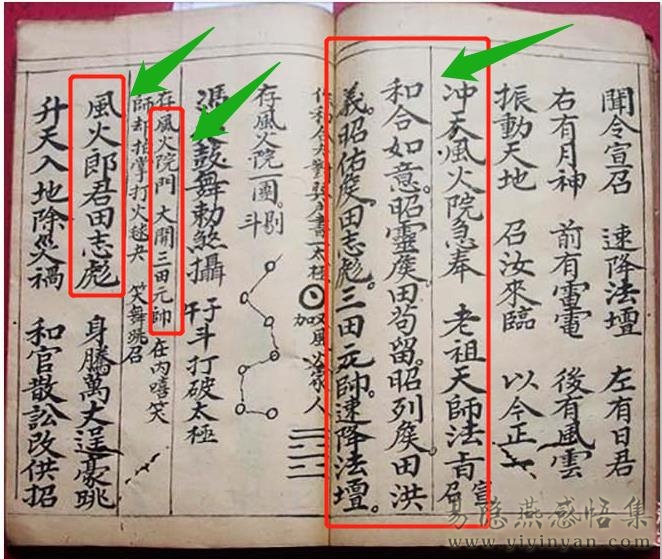 聞令宣召　速降法壇　左有日君
右有月神　前有雷電　後有風雲
振動天地　召汝來臨　以今正
沖天風火院急奉　老祖天師法旨宣召
和合如意。昭靈侯田苟留。昭列侯田洪
義。昭佑侯田志彪。三田元帥。速降法壇。
書一太極　加　風火家人
存風火院一圈。剔斗
鼓舞勅煞攝　子午斗打破太極
存風火院門　大開三田元帥　在内嘻笑
師却拍掌打火毬　笑舞　召
風火郎君田志彪　身騰萬大逞豪眺
升天入地除災禍　和官散訟改供招
易隐燕感悟集
www.yiyinyan.com